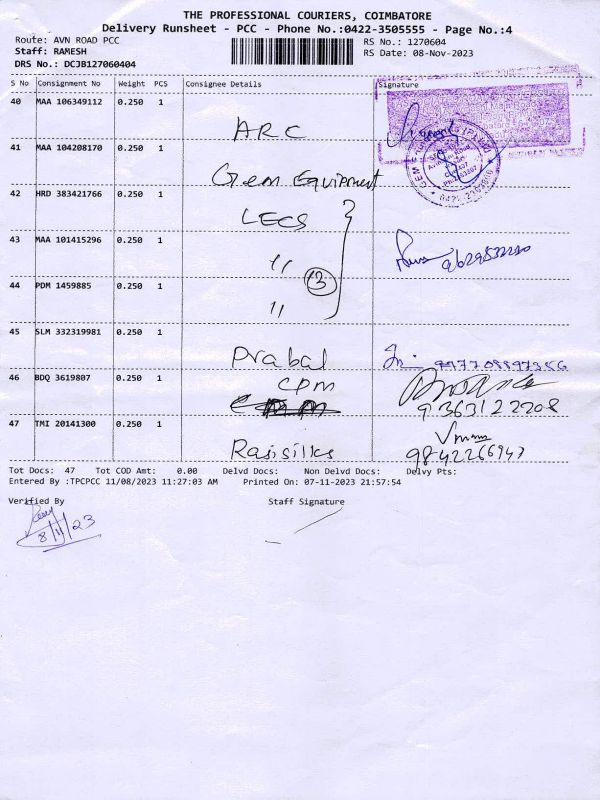 THE PROFESSIONAL COURIERS, COIMBATORE
Delivery Runsheet - PCC - Phone No.:0422-3505555 - Page No.:4
Route: AVN ROAD PCC
RS No.: 1270604
Staff: RAMESH
RS Date: 08-Nov-2023
DRS No.: DCJB127060404
S No Consignment No Weight PCS Consignee Details Signature
40 MAA 106349112 0.250 1
ARC
41 MAA 104208170 0.250 1
Gem Equipment
42 HRD 383421766 0.250 1
LECS
43 MAA 101415296 0.250 1
" 3
44 PDM 1459885 0.250 1
"
45 SLM 332319981 0.250 1
Prabal
46 BDQ 3619807 0.250 1
CPM
9363122208
47 TMI 20141300 0.250 1
Rajsilks 9842266947
Tot Docs: 47 Tot COD Amt: 0.00 Delvd Docs: Non Delvd Docs: Delvy Pts:
Entered By :TPCPCC 11/08/2023 11:27:03 AM Printed On: 07-11-2023 21:57:54
Verified By Staff Signature
8/11/23